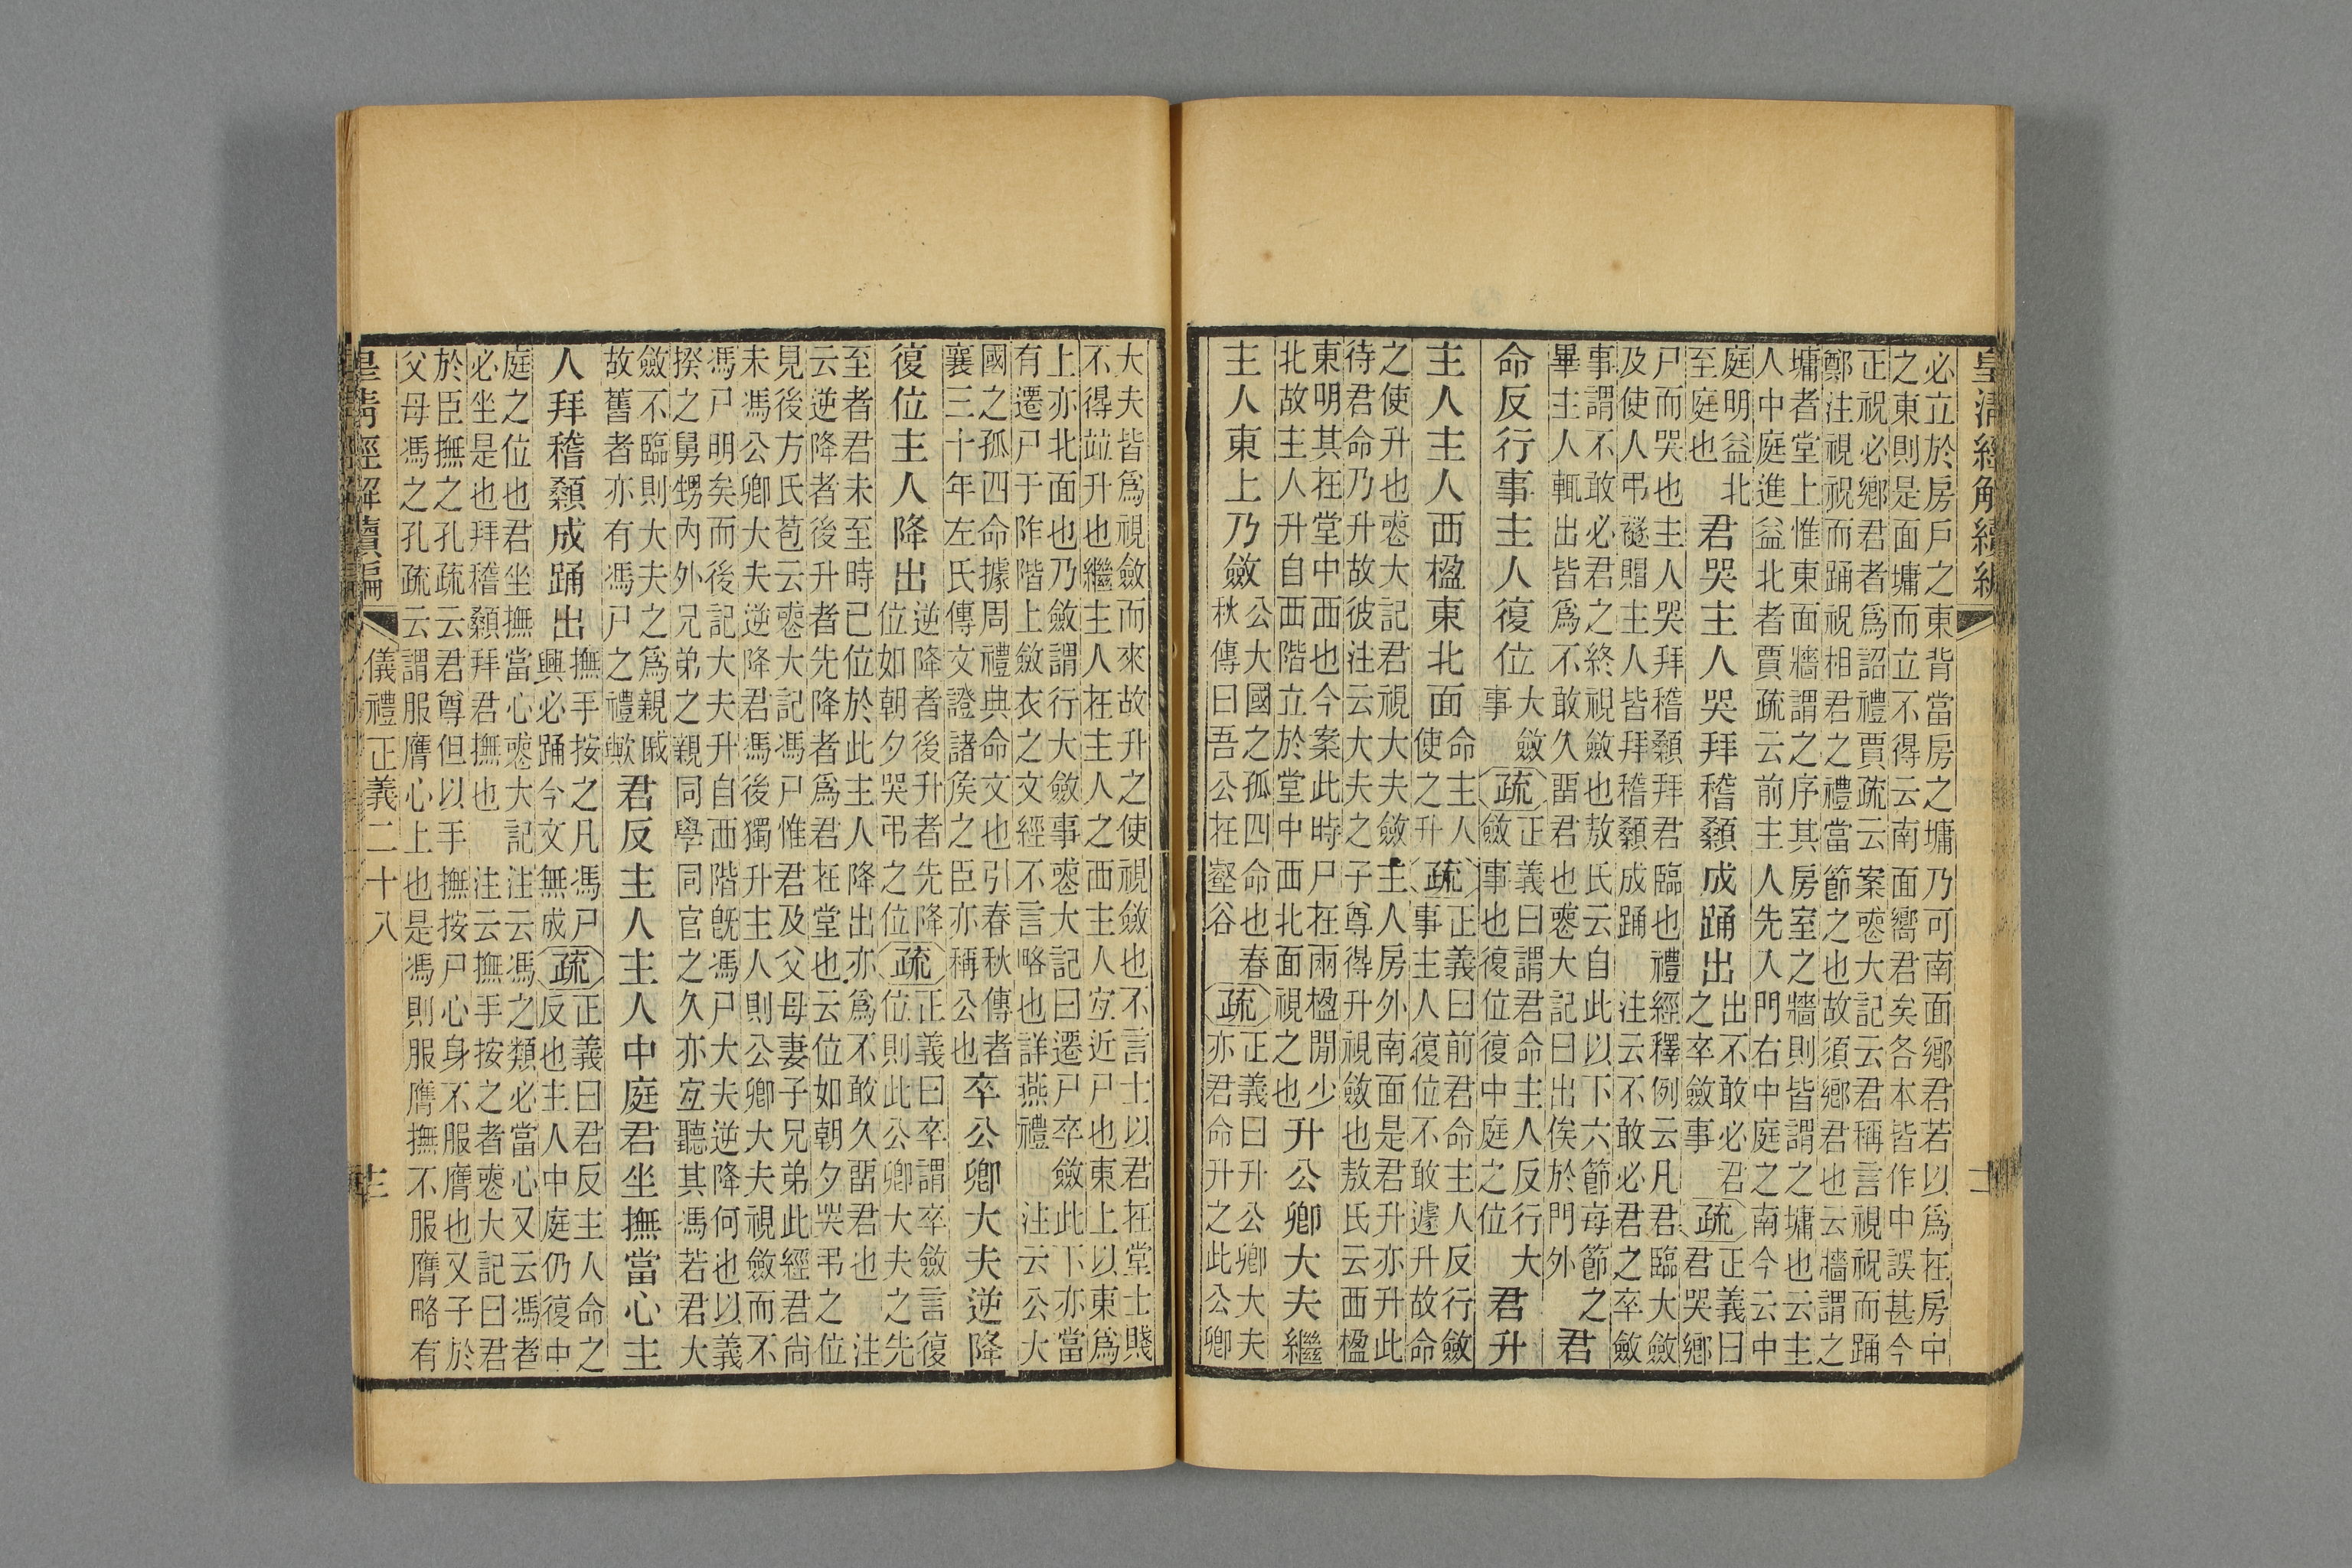 皇清經解續編
必立於房戶之東背當房之墉乃可南面鄉君若以爲在房中
之東則是面墉而立不得云南面嚮君矣各本皆作中誤甚今
正祝必鄉君者爲詔禮賈疏云案喪大記云君稱言視祝而踊
鄭注視祝而踊祝相君之禮當節之也故須鄉君也云牆謂之
墉者堂上惟東面牆謂之序其房室之牆則皆謂之墉也云主
人中庭進益北者賈疏云前主人先入門右中庭之南今云中
庭明益北
至庭也
君哭主人哭拜稽顙成踊出
出不敢必君
之卒斂事
疏
正義曰
君哭鄉
尸而哭也主人哭拜稽顙拜君臨也禮經釋例云凡君臨大斂
及使人弔襚賵主人皆拜稽顙成踊 注云不敢必君之卒斂
事謂不敢必君之終視斂也敖氏云自此以下六節每節之
畢主人輒出皆爲不敢久留君也喪大記曰出俟於門外
君
命反行事主人復位
大斂
事
疏
正義曰謂君命主人反行大
斂事也復位復中庭之位
君升
主人主人西楹東北面
命主人
使之升
疏
正義曰前君命主人反行斂
事主人復位不敢遽升故命
之使升也喪大記君視大夫斂主人房外南面是君升亦升此
待君命乃升故彼注云大夫之子尊得升視斂也敖氏云西楹
東明其在堂中西也今案此時尸在兩楹閒少
北故主人升自西階立於堂中西北面視之也
升公卿大夫繼
主人東上乃斂
公大國之孤四命也春
秋傳曰吾公在壑谷
疏
正義曰升公卿大夫
亦君命升之此公卿
大夫皆爲視斂而來故升之使視斂也不言士以君在堂士賤
不得竝升也繼主人在主人之西主人宜近尸也東上以東爲
上亦北面也乃斂謂行大斂事喪大記曰遷尸卒斂此下亦當
有遷尸于阼階上斂衣之文經不言略也詳燕禮 注云公大
國之孤四命據周禮典命文也引春秋傳者
襄三十年左氏傳文證諸侯之臣亦稱公也
卒公卿大夫逆降
復位主人降出
逆降者後升者先降
位如朝夕哭弔之位
疏
正義曰卒謂卒斂言復
位則此公卿大夫之先
至者君未至時已位於此主人降出亦爲不敢久留君也 注
云逆降者後升者先降者爲君在堂也云位如朝夕哭弔之位
見後方氏苞云喪大記馮尸惟君及父母妻子兄弟此經君尚
未馮公卿大夫逆降君馮後獨升主人則公卿大夫視斂而不
馮尸明矣而後記大夫升自西階旣馮尸大夫逆降何也以義
揆之舅甥內外兄弟之親同學同官之久亦宜聽其馮若君大
斂不臨則大夫之爲親戚
故舊者亦有馮尸之禮歟
君反主人主人中庭君坐撫當心主
人拜稽顙成踊出
撫手按之凡馮尸
興必踊今文無成
疏
正義曰君反主人命之
反也主人中庭仍復中
庭之位也君坐撫當心喪大記注云馮之類必當心又云馮者
必坐是也拜稽顙拜君撫也 注云撫手按之者喪大記曰君
於臣撫之孔疏云君尊但以手撫按尸心身不服膺也又子於
父母馮之孔疏云謂服膺心上也是馮則服膺撫不服膺略有
皇清經解續編 儀禮正義二十八